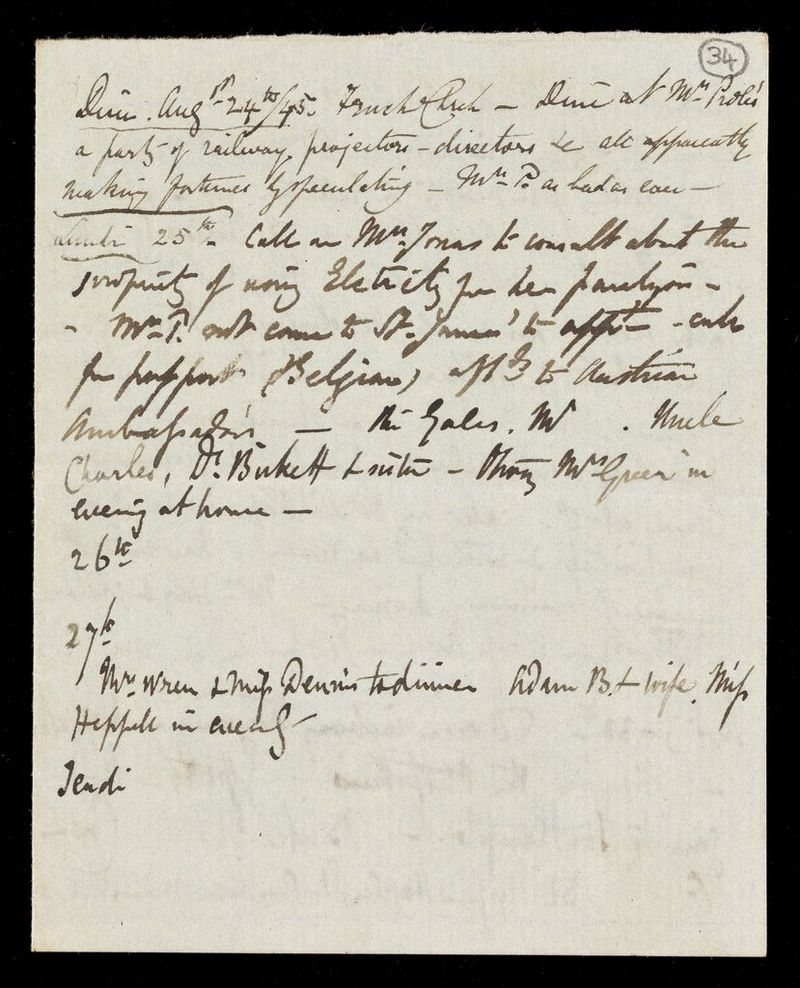 34
Dim. Augst 24th/45. French Ch. – Dine at Mrs
a party of railway projectors – directors &c all apparently
making fortunes by speculating – Mrs P. as bad as ever –
Lundi 25th. Call on Mrs Jonas to consult about the
propriety of using Electricity for her paralysis –
– Mrs P. not come to St. James' to appt – call
for passport (Belgian) aftds to Austrian
Ambassador's — the Gales. Mr . Uncle
Charles, Dr. Birkett & sister – Mrs Greer in
evening at home —
26th
27th
Mrs Wren & Miss Dennis to dinner Adam B. & wife. Miss
Heppell in eveng
Jeudi